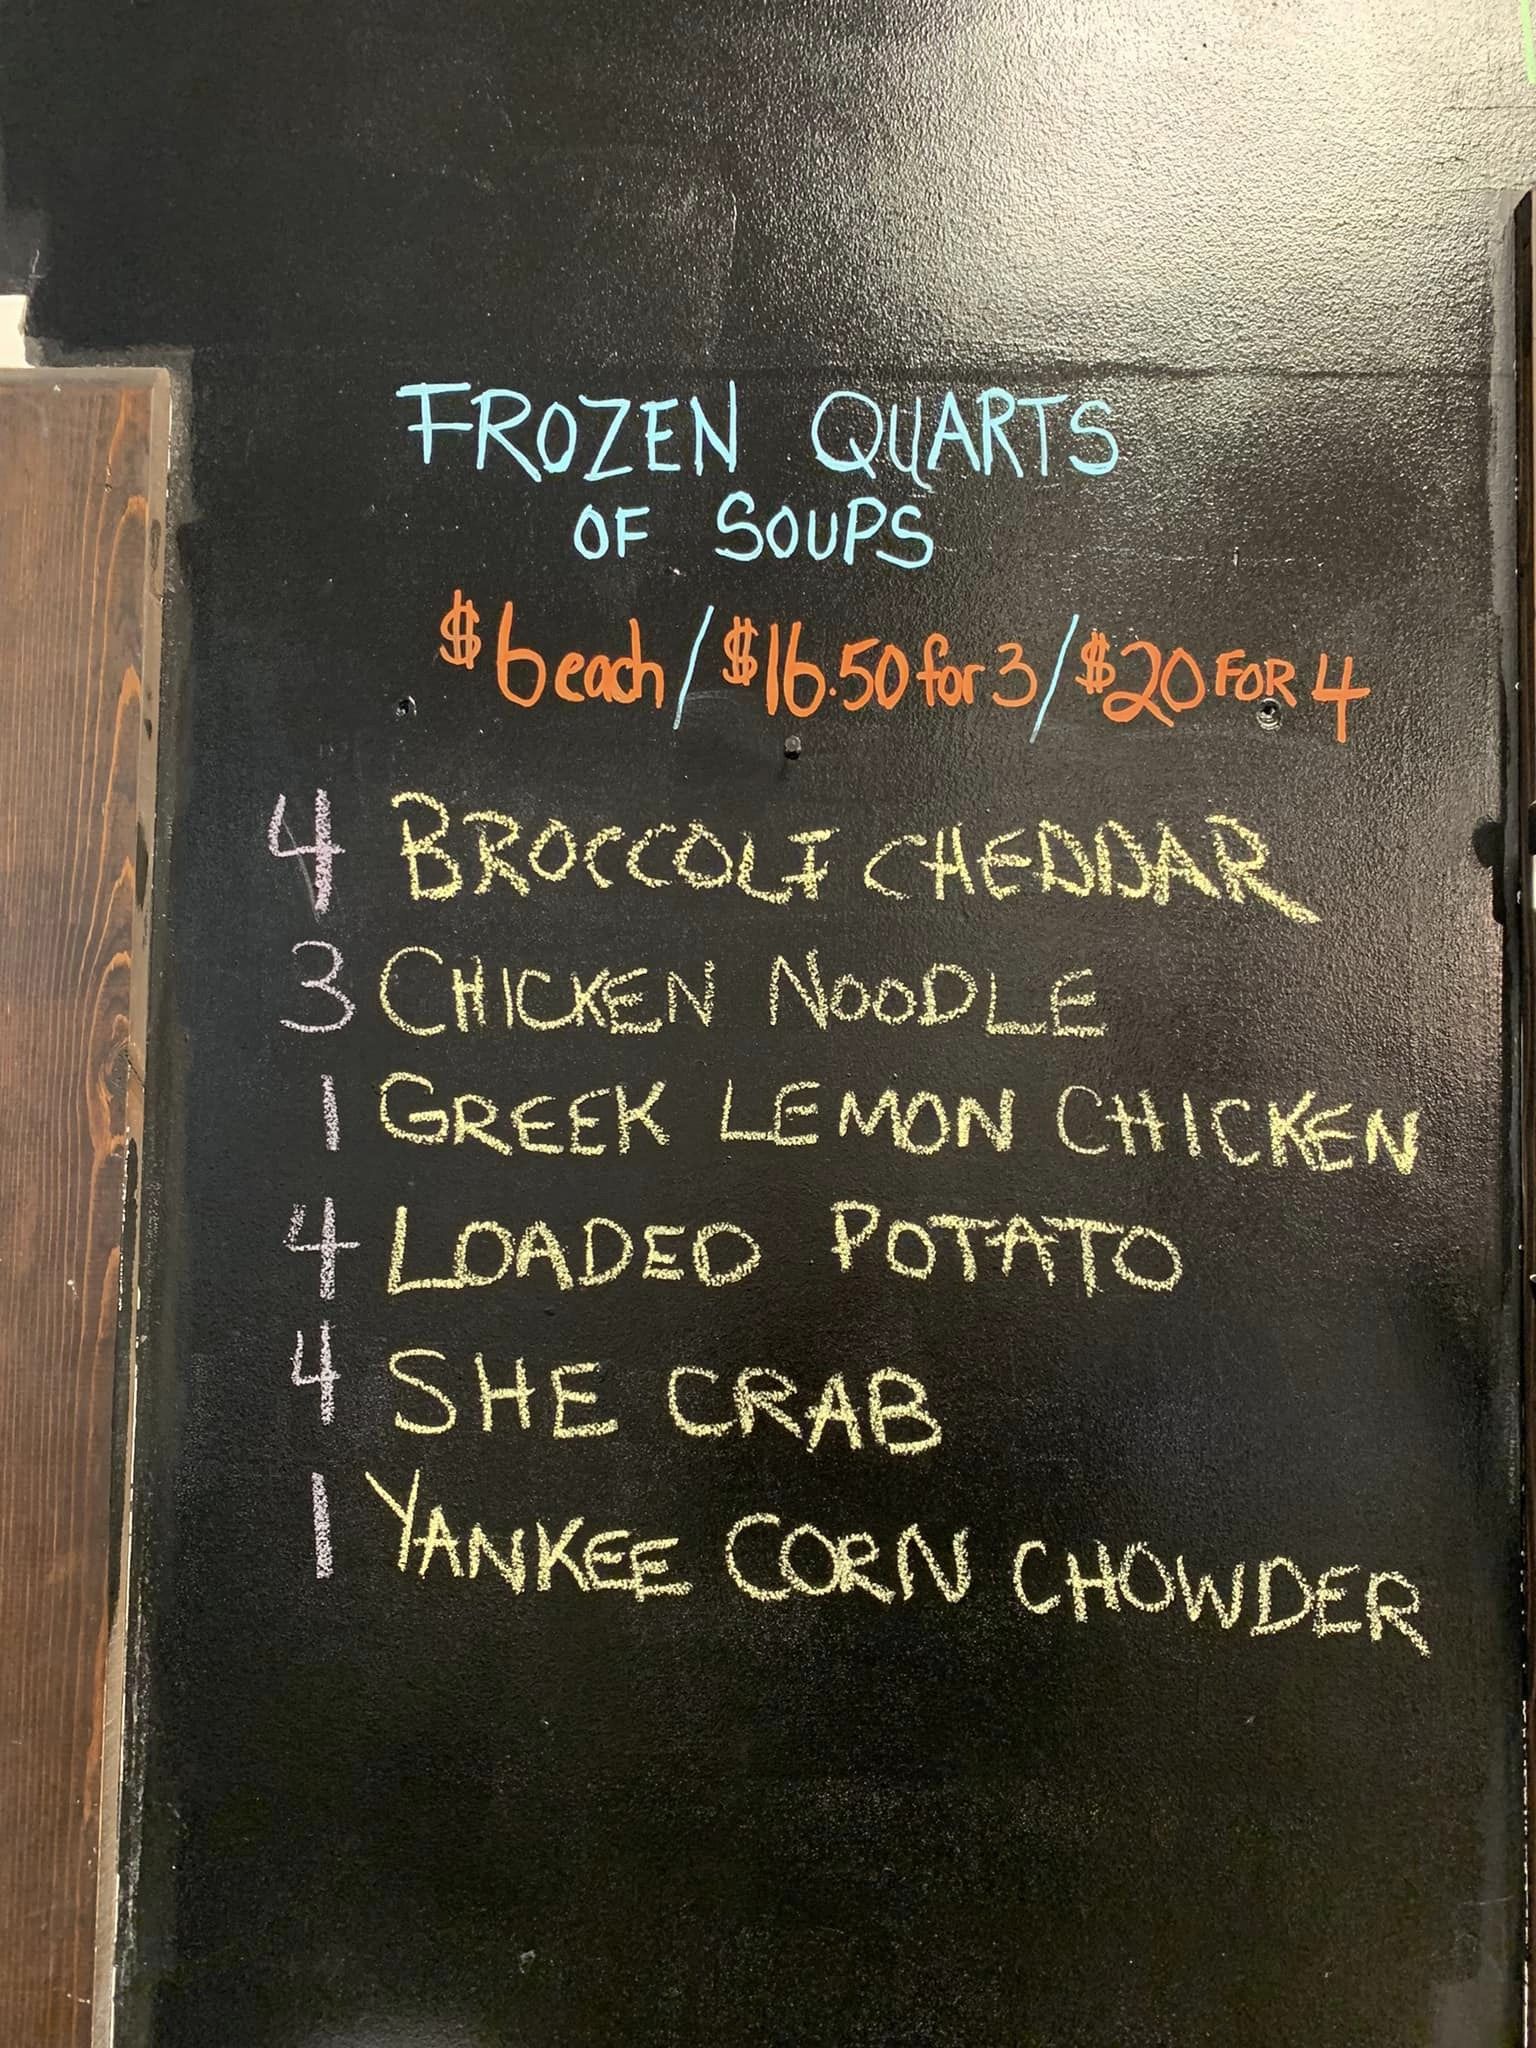 FROZEN QUARTS
OF SOUPS
$6 each / $16.50 for 3 / $20 FOR 4
4 BROCCOLI CHEDDAR
3 CHICKEN NOODLE
1 GREEK LEMON CHICKEN
4 LOADED POTATO
4 SHE CRAB
1 YANKEE CORN CHOWDER